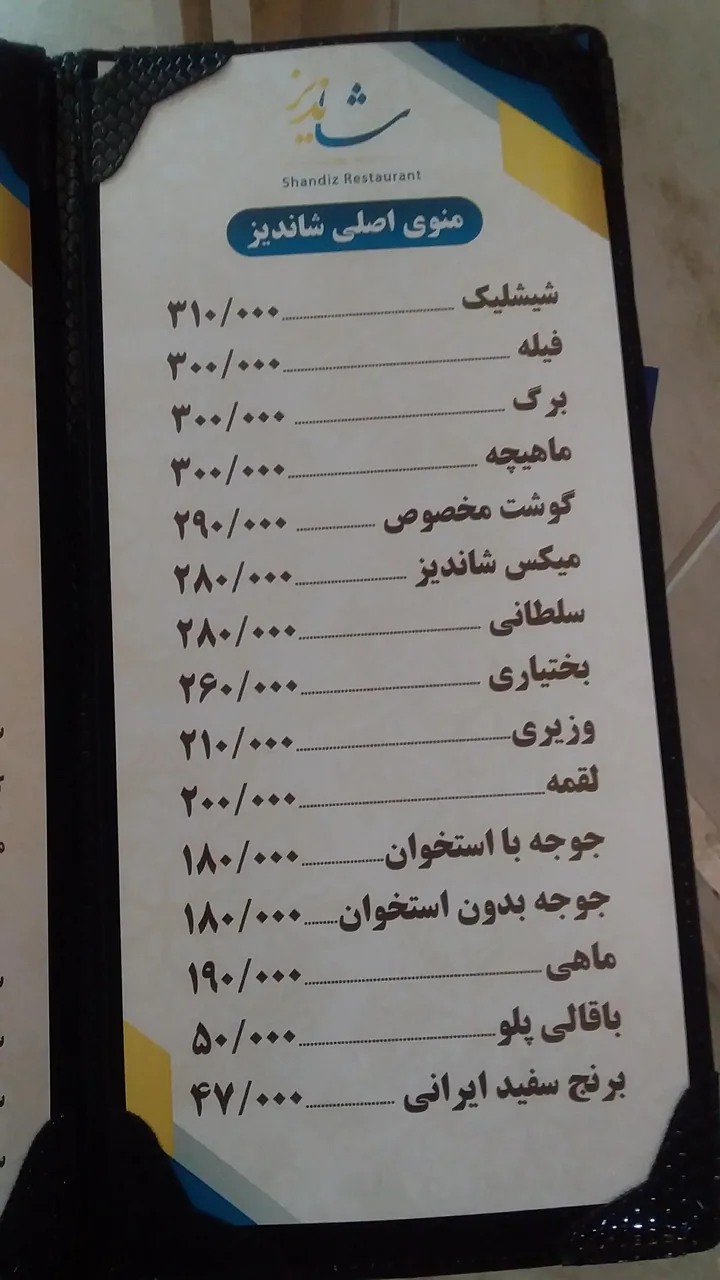 شاندیز
Shandiz Restaurant
منوی اصلی شاندیز
شیشلیک ۳۱۰/۰۰۰
فیله ۳۰۰/۰۰۰
برگ ۳۰۰/۰۰۰
ماهیچه ۳۰۰/۰۰۰
گوشت مخصوص ۲۹۰/۰۰۰
میکس شاندیز ۲۸۰/۰۰۰
سلطانی ۲۸۰/۰۰۰
بختیاری ۲۶۰/۰۰۰
وزیری ۲۱۰/۰۰۰
لقمه ۲۰۰/۰۰۰
جوجه با استخوان ۱۸۰/۰۰۰
جوجه بدون استخوان ۱۸۰/۰۰۰
ماهی ۱۹۰/۰۰۰
باقالی پلو ۵۰/۰۰۰
برنج سفید ایرانی ۴۷/۰۰۰